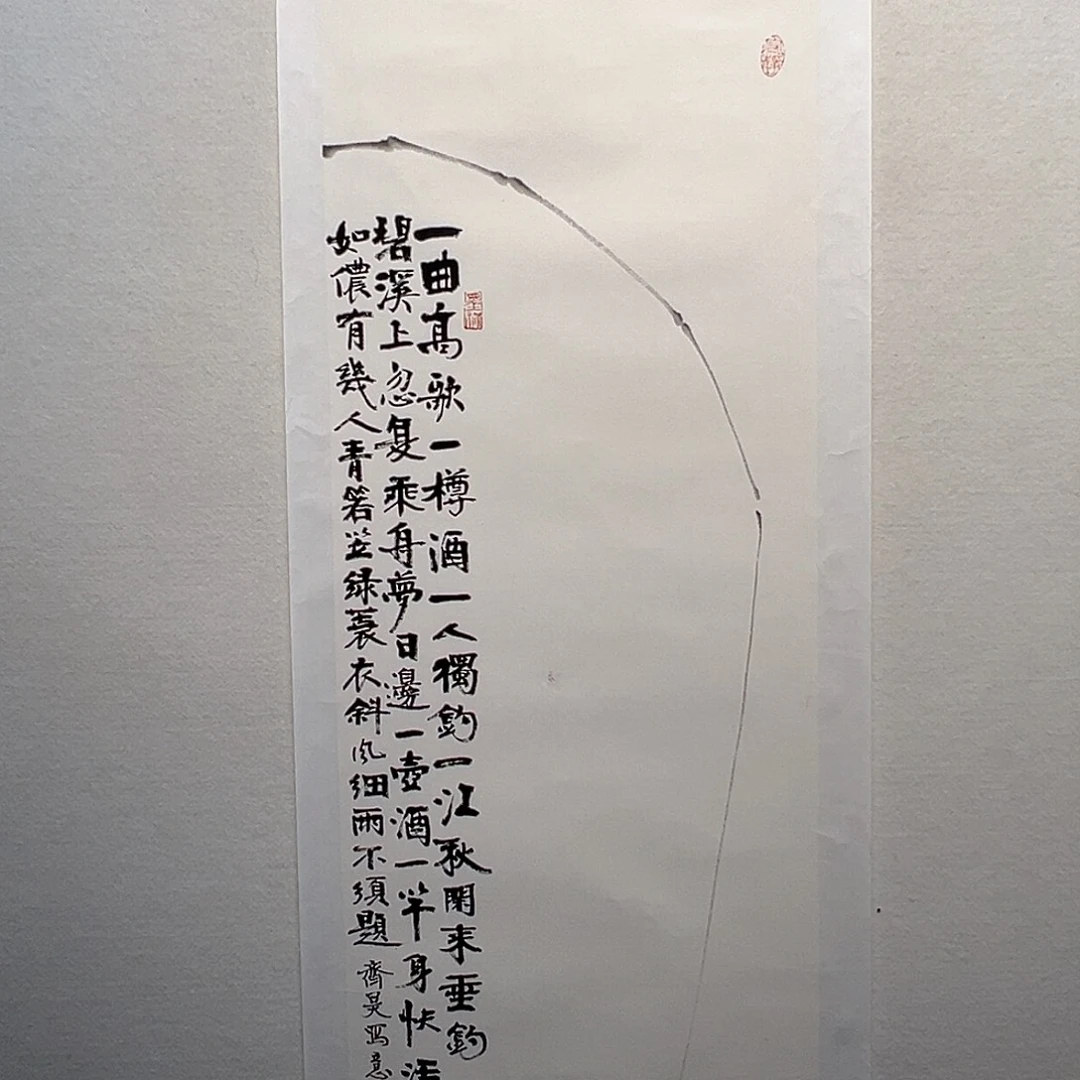 一曲高歌一樽酒一人獨鈎一江秋閑來垂鈎
碧溪上忽复乘舟夢日邊一壺酒一竿身快活
如儂有幾人青箬笠绿蓑衣斜风细雨不須題
齊是写意